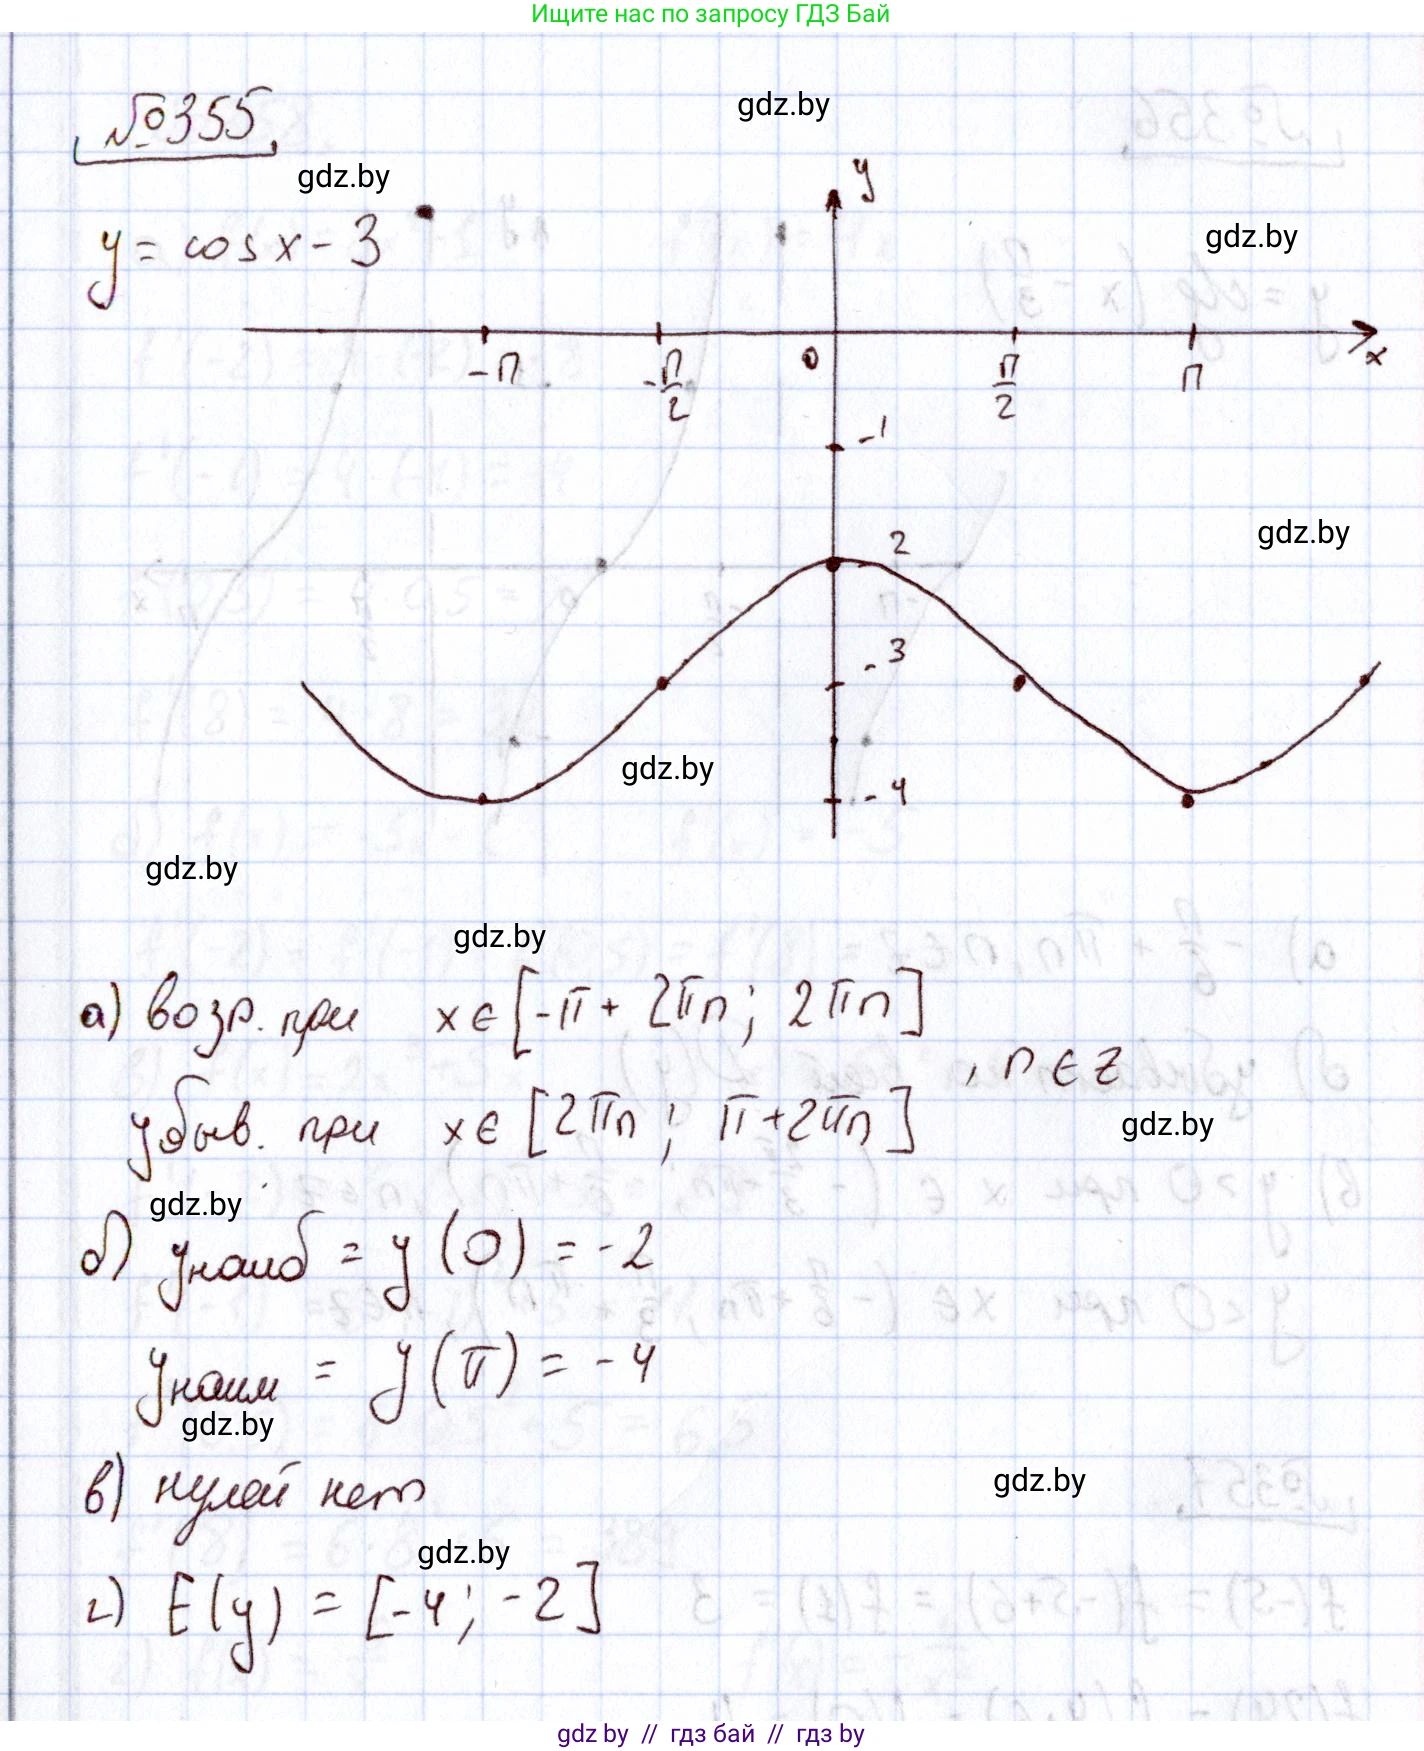 Ищите нас по запросу ГДЗ Бай
№355
gdz.by
gdz.by
y = cos x - 3
gdz.by
y
-π
-π/2
0
π/2
π
x
-1
2
gdz.by
-3
gdz.by
-4
gdz.by
gdz.by
а) возр. при x ∈ [-π + 2πn; 2πn]
, n ∈ Z
убыв. при x ∈ [2πn; π+2πn]
gdz.by
gdz.by
б) yнаиб = y(0) = -2
yнаим = y(π) = -4
gdz.by
в) нулей нет
gdz.by
gdz.by
г) E(y) = [-4; -2]
gdz.by // гдз бай // гдз by